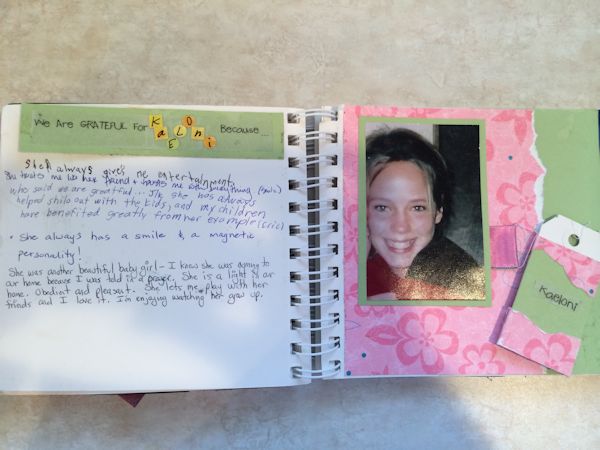 We Are GRATEFUL For KaELOni Because...
She always gives me entertainment
She treats me like her friend & trusts me everything (smile)
who said we are greatful... J/k she has always
helped shilo out with the kids, and my children
have benefited greatly from her example (eric)
• She always has a smile & a magnetic
personality!
She was another beautiful baby girl - I knew she was coming to
our home because I was told in a prayer. She is a light to our
home. Obedient and pleasant. She lets me play with her
friends and I love it. I'm enjoying watching her grow up.
Kaeloni